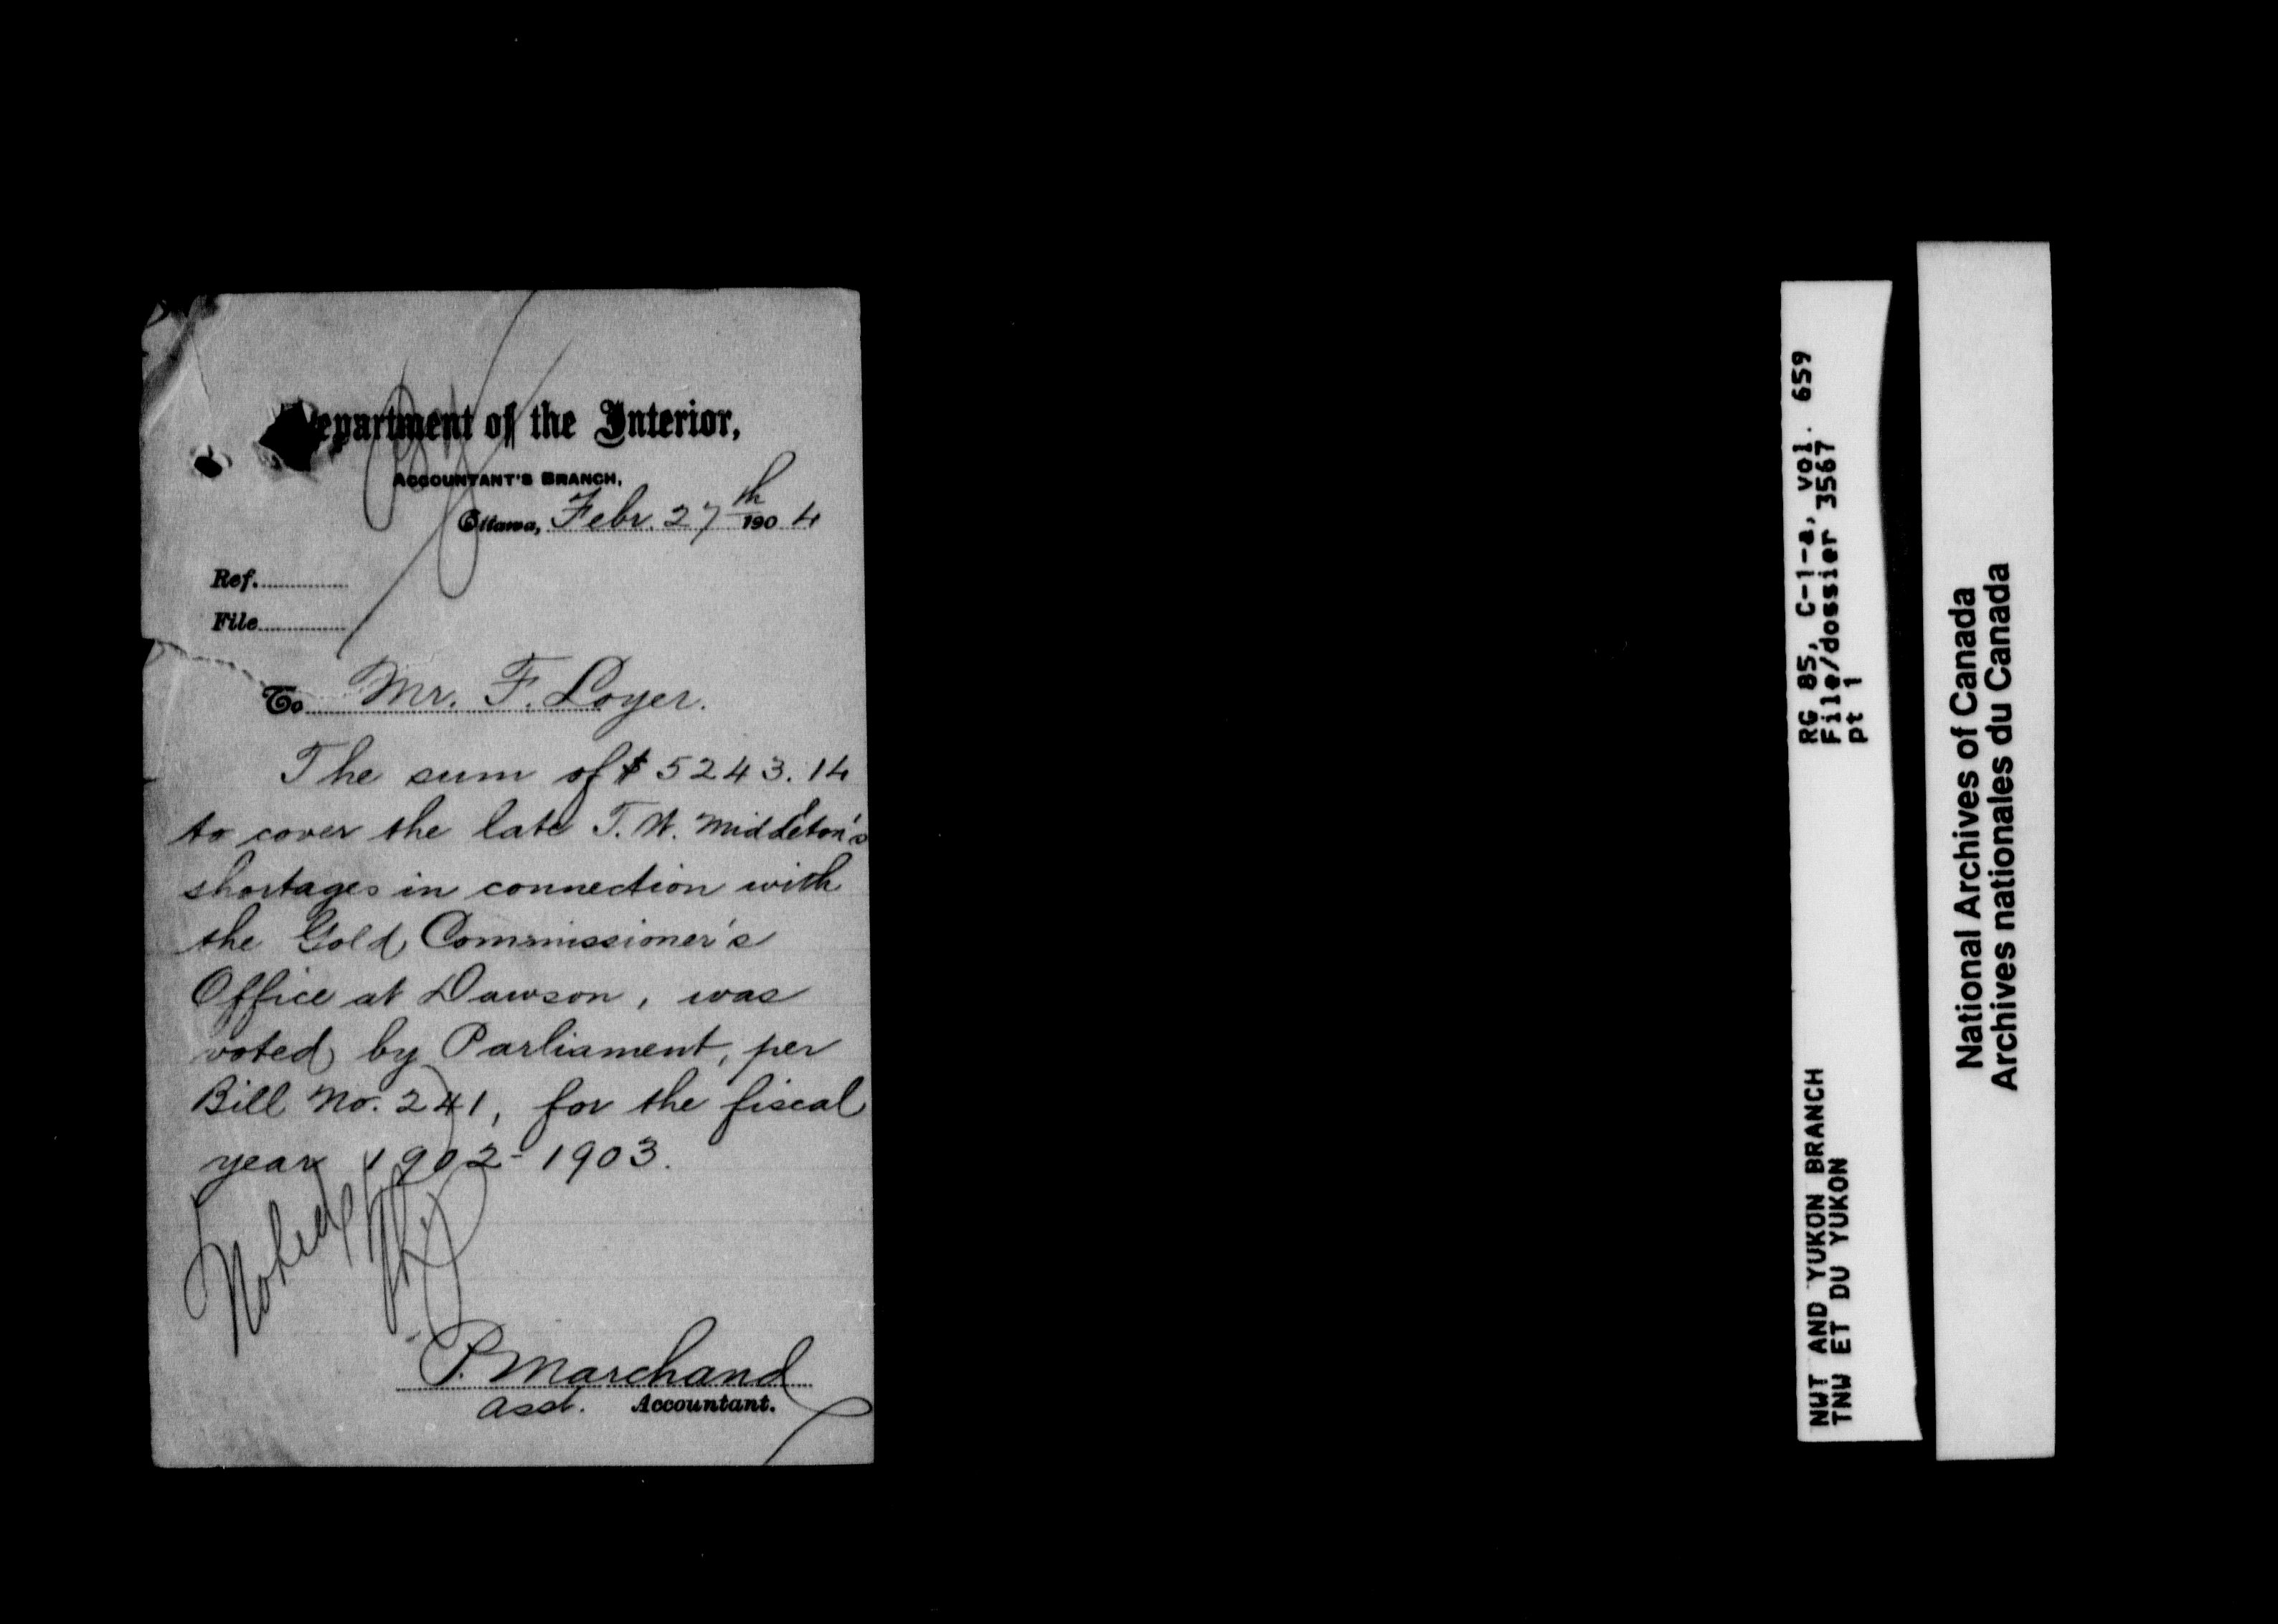 Department of the Interior,
ACCOUNTANT'S BRANCH,
Ottawa, Febr. 27th 1904
Ref.
File
To Mr. F. Loyer.
The sum of $5243.14
to cover the late T. W. Middleton's
shortages in connection with
the Gold Commissioner's
Office at Dawson, was
voted by Parliament, per
Bill No. 241, for the fiscal
year 1902-1903.
Noted
P. Marchand
Asst. Accountant.
RG 85, C-1-a, vol. 659
File/dossier 3567
pt 1
NWT AND YUKON BRANCH
TNW ET DU YUKON
National Archives of Canada
Archives nationales du Canada